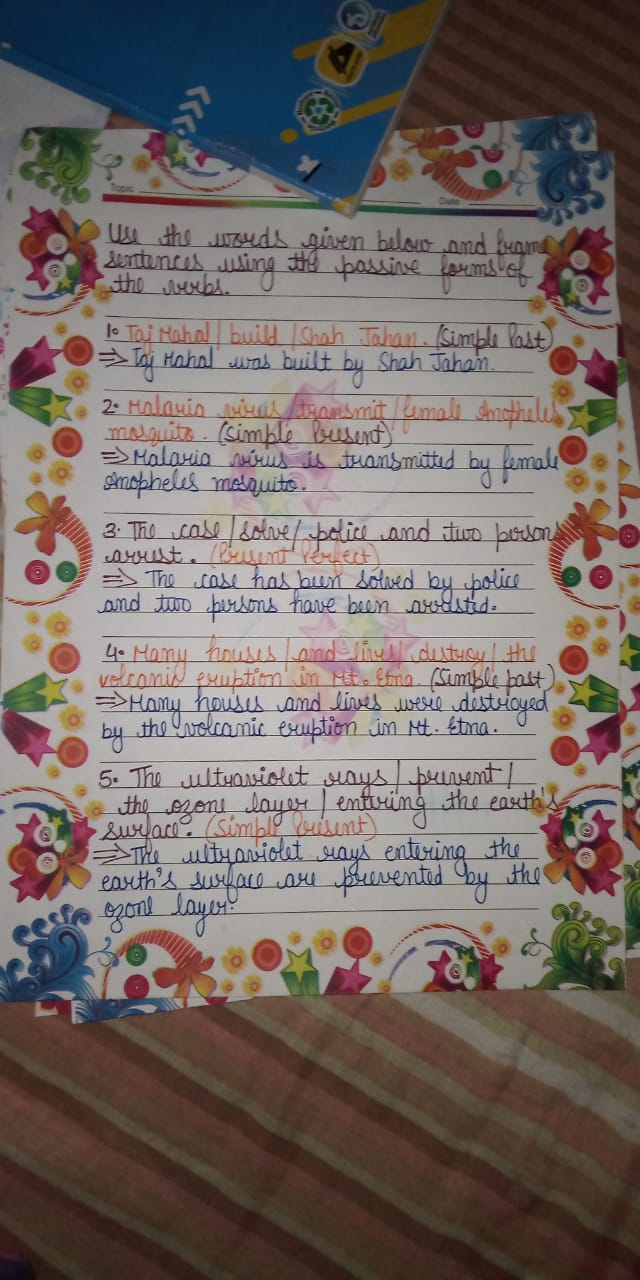 Topic
Date
Use the words given below and frame
sentences using the passive forms of
the verbs.
1. Taj Mahal / build / Shah Jahan. (Simple Past)
⇒ Taj Mahal was built by Shah Jahan.
2. Malaria virus / transmit / female Anopheles
mosquito. (Simple Present)
⇒ Malaria virus is transmitted by female
Anopheles mosquito.
3. The case / solve / police and two persons
arrest. (Present Perfect)
⇒ The case has been solved by police
and two persons have been arrested.
4. Many houses / and lives / destroy / the
volcanic eruption in Mt. Etna. (Simple past)
⇒ Many houses and lives were destroyed
by the volcanic eruption in Mt. Etna.
5. The ultraviolet rays / prevent /
the ozone layer / entering the earth's
surface. (Simple Present)
⇒ The ultraviolet rays entering the
earth's surface are prevented by the
ozone layer.